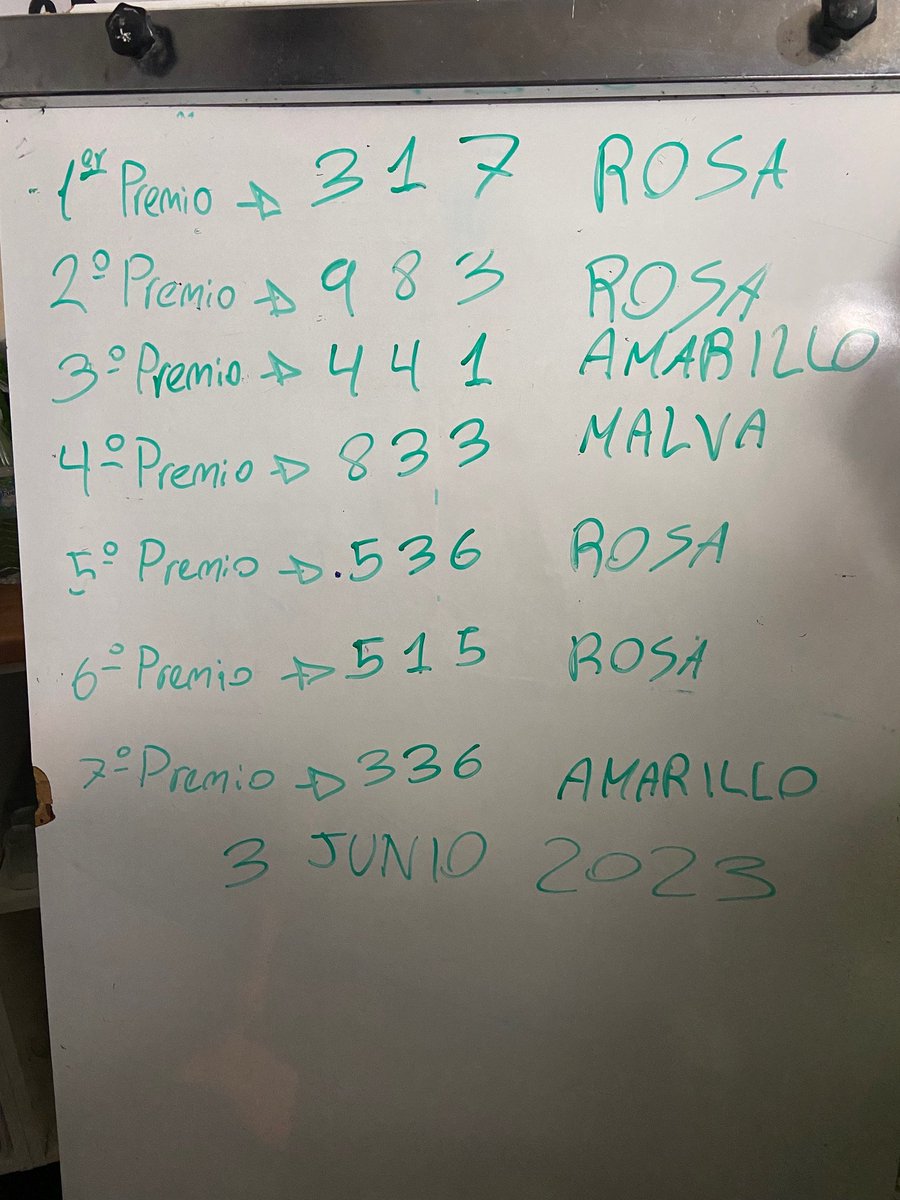 1er Premio → 317 ROSA
2º Premio → 983 ROSA
3º Premio → 441 AMARILLO
4º Premio → 833 MALVA
5º Premio → 536 ROSA
6º Premio → 515 ROSA
7º Premio → 336 AMARILLO
3 JUNIO 2023